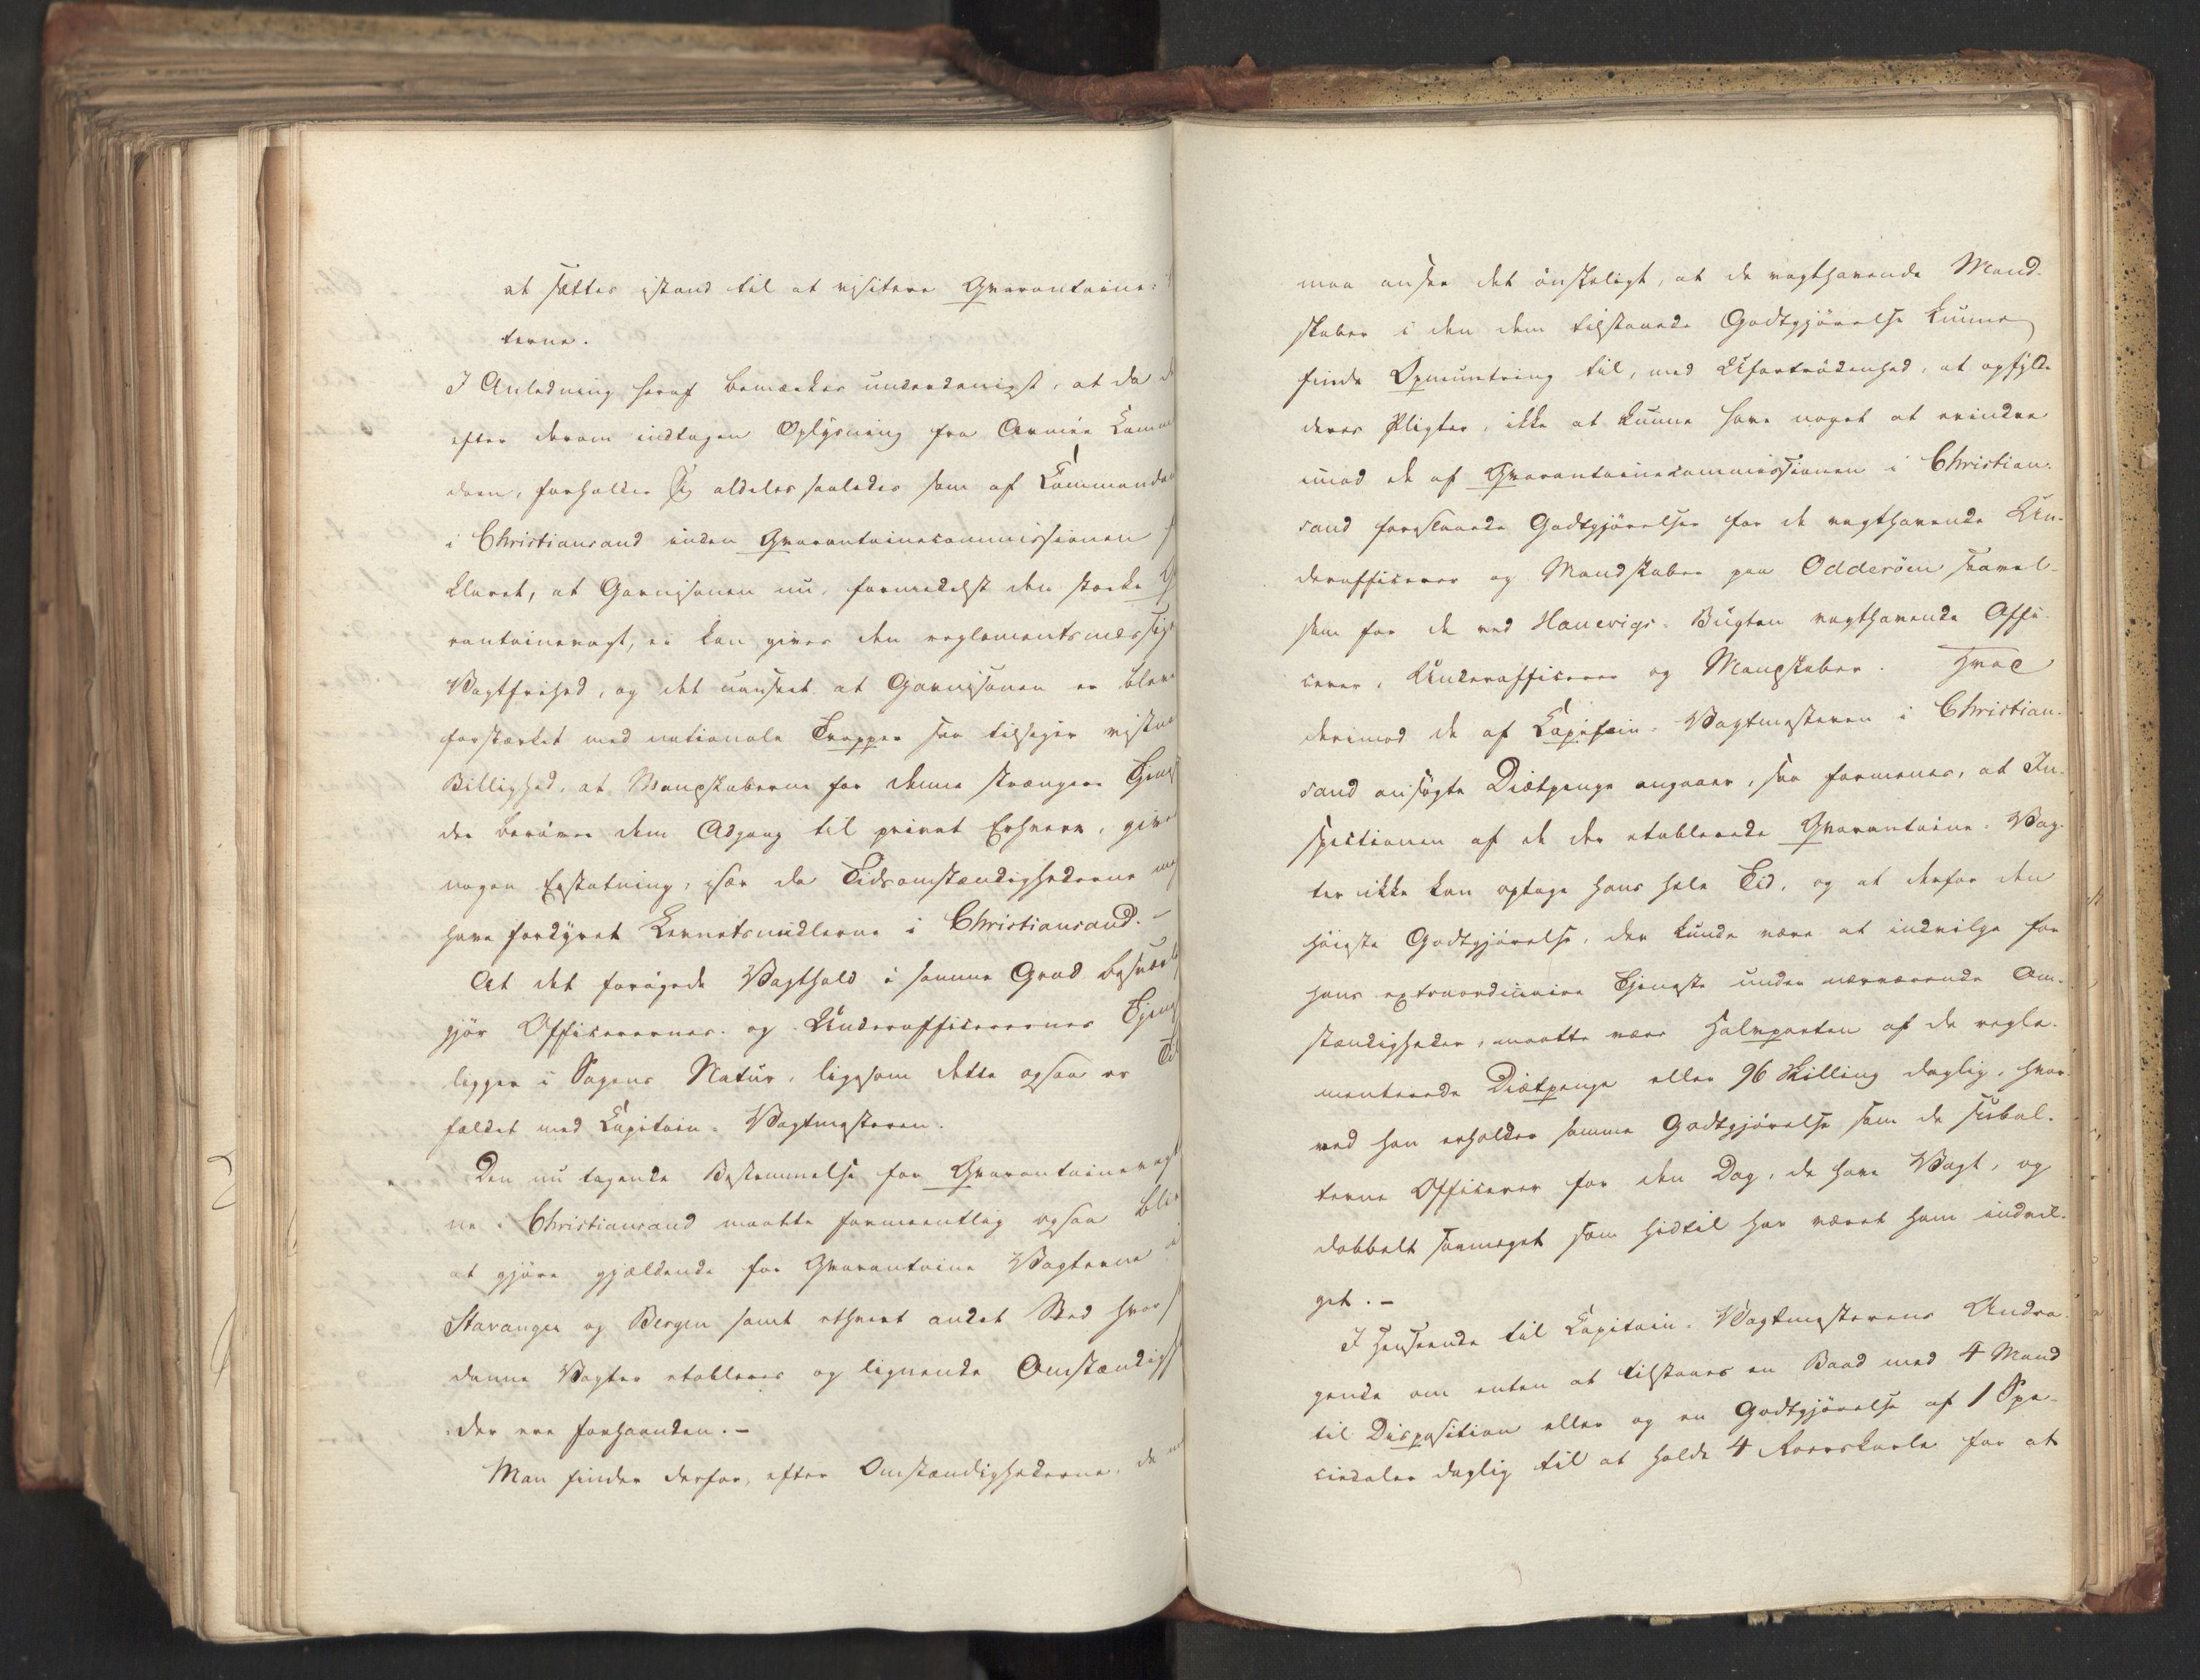 at sættes istand til at visitere Qvarantaine-
terne.
I Anledning heraf bemærkes underdanigst, at da
efter derom indtagen Oplysning fra Armée Comm
doen, forholder sig aldeles saaledes som af Commandan
i Christiansand inden Qvarantainecommissionen
klaret, at Garnisonen nu, formedelst den stærke Q
rantainevagt, ei kan gives den reglementsmæssige
Vagtfrihed, og det uanseet at Garnisonen er bleve
forstærket med nationale Tropper saa tilsiger vistno
Billighed, at Mandskaberne for denne strængere Tjenes
der berøver dem Adgang til privat Erhverv, give
nogen Erstatning, især da Tidsomstændighederne
have fordyret Levnetsmidlerne i Christiansand. -
At det forøgede Vagthold i samme Grad besværli
gjør Officerernes og Underofficerernes Tjenes
ligger i Sagens Natur, ligesom dette ogsaa er Til
fældet med Capitain-Vagtmesteren.
Den nu tagende Bestemmelse for Qvarantainevagt
ne i Christiansand maatte formeentlig ogsaa bliv
at gjøre gjældende for Qvarantaine Vagterne i
Stavanger og Bergen samt ethvert andet Sted hvor s
danne Vagter etableres og lignende Omstændigh
der ere forhaanden. -
Man finder derfor, efter Omstændighederne, da
maa ansee det ønskeligt, at de vagthavende Mand-
skaber i den dem tilstaaede Godtgjørelse kunne
finde Opmuntring til, med Ufortrødenhed, at opfylde
deres Pligter, ikke at kunne have noget at erindre
imod de af Qvarantainecommissionen i Christian-
sand foreslaaede Godtgjørelser for de vagthavende Un-
derofficerer og Mandskaber paa Odderöen saavel-
som for de ved Hanevigs-Bugten vagthavende Offi-
cerer, Underofficerer og Mandskaber. Hvad
derimod de af Capitain-Vagtmesteren i Christian-
sand ansøgte Diætpenge angaaer, saa formenes, at In-
spectionen af de der etablerede Qvarantaine-Vag-
ter ikke kan optage hans hele Tid, og at derfor den
høieste Godtgjørelse, der kunde være at indvilge for
hans extraordinaire Tjeneste under nærværende Om-
stændigheder, maatte være Halvparten af de regle-
menterede Diætpenge eller 96 Skilling daglig, hvor-
ved han erholder samme Godtgjørelse som de subal-
terne Officerer for den Dag, de have Vagt, og
dobbelt saameget som hidtil har været ham indvil-
get. -
I Henseende til Capitain-Vagtmesterens Andra-
gende om enten at tilstaaes en Baad med 4 Mand
til Disposition eller og en Godtgjørelse af 1 Spe-
ciedaler daglig til at holde 4 Roerskarle for at